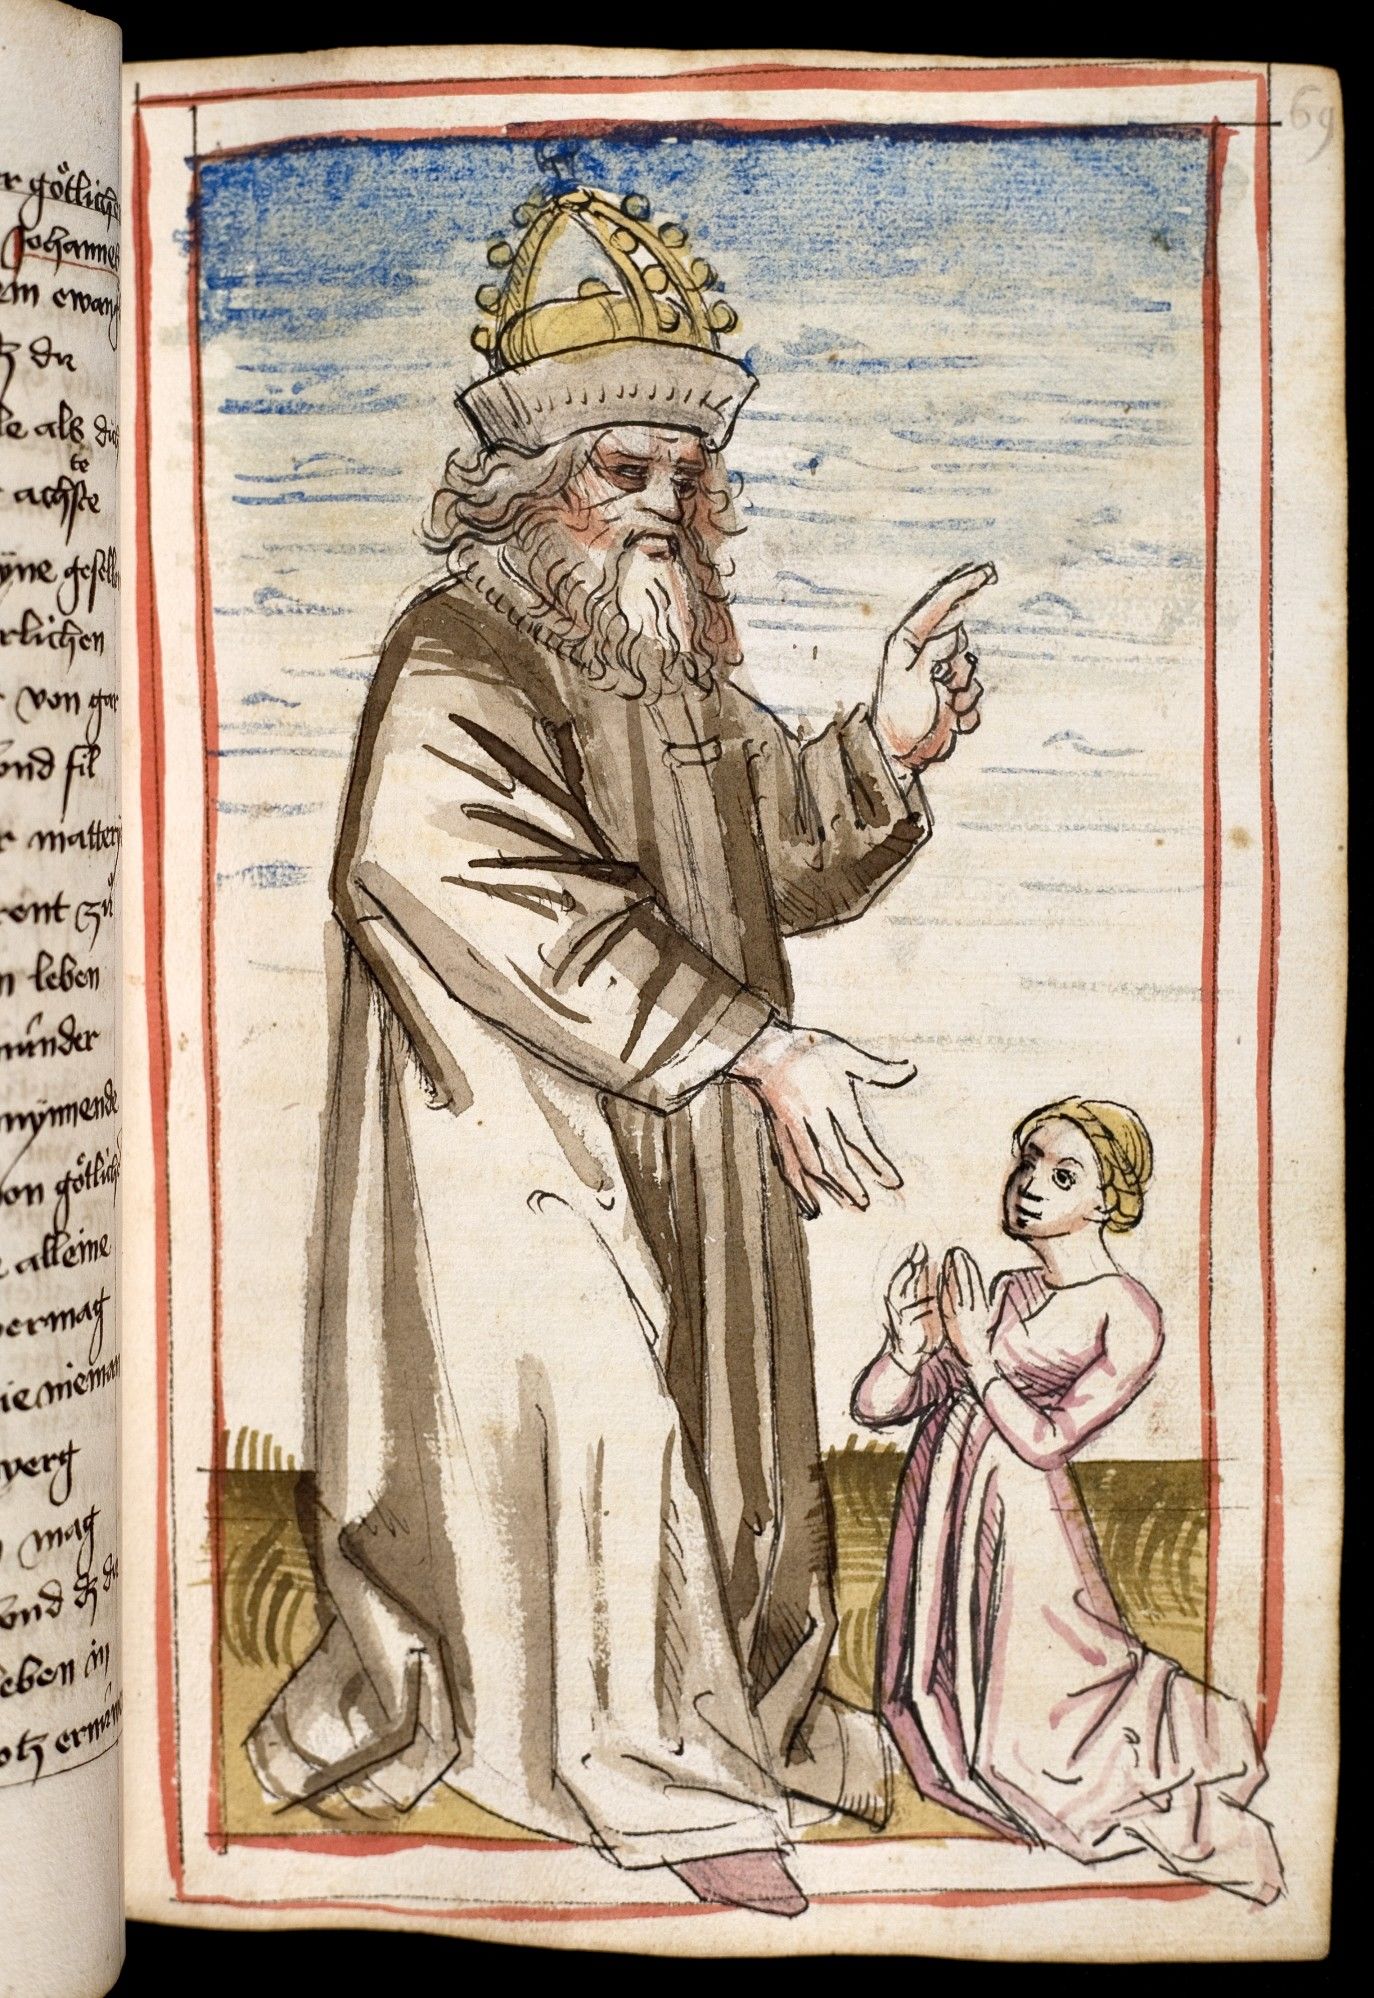 r götlich
Johannes
ein ewang
dz du
le als die
te
achste
yne gesell
rlichen
von gar
vnd fil
r mattery
rent zů
n leben
münder
mynnende
von götlich
alleine
vermag
ie nieman
werg
mag
vnd dz du
leben in
otz
69